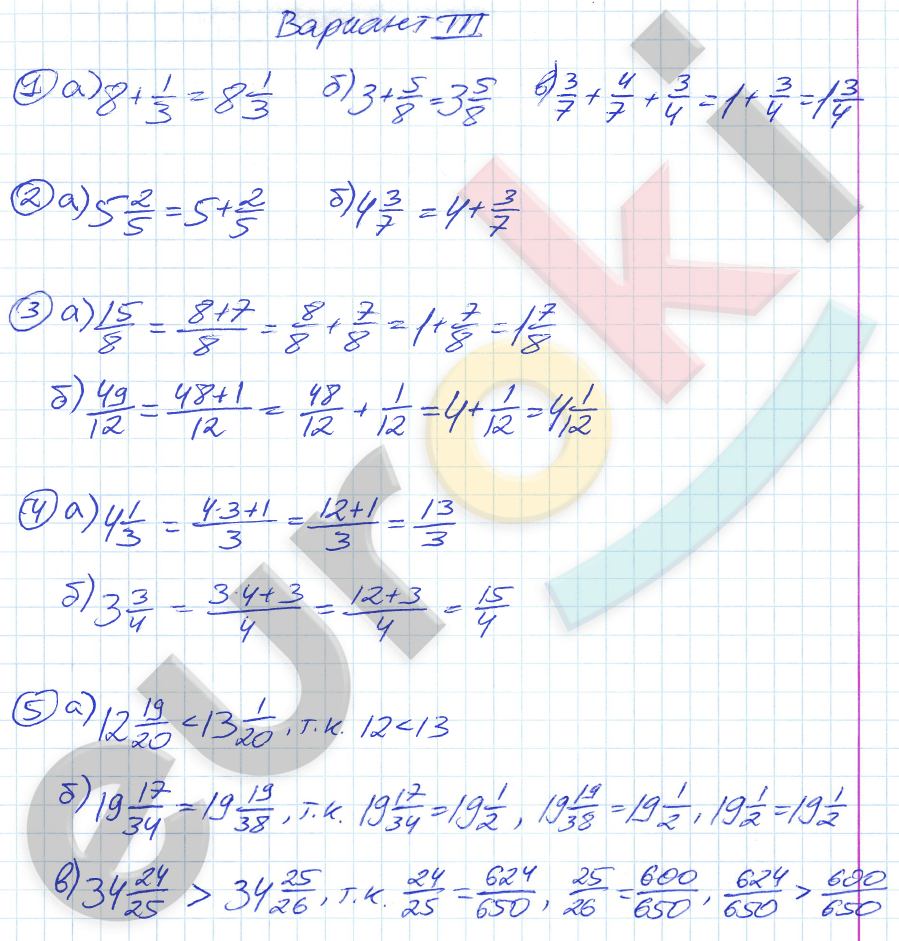 Вариант III
① а) 8 + 1/3 = 8 1/3 б) 3 + 5/8 = 3 5/8 в) 3/7 + 4/7 + 3/4 = 1 + 3/4 = 1 3/4
② а) 5 2/5 = 5 + 2/5 б) 4 3/7 = 4 + 3/7
③ а) 15/8 = (8+7)/8 = 8/8 + 7/8 = 1 + 7/8 = 1 7/8
б) 49/12 = (48+1)/12 = 48/12 + 1/12 = 4 + 1/12 = 4 1/12
④ а) 4 1/3 = (4·3+1)/3 = (12+1)/3 = 13/3
б) 3 3/4 = (3·4+3)/4 = (12+3)/4 = 15/4
⑤ а) 12 19/20 < 13 1/20, т.к. 12 < 13
б) 19 17/34 = 19 19/38, т.к. 19 17/34 = 19 1/2, 19 19/38 = 19 1/2, 19 1/2 = 19 1/2
в) 34 24/25 > 34 25/26, т.к. 24/25 = 624/650, 25/26 = 600/650, 624/650 > 600/650
euroki